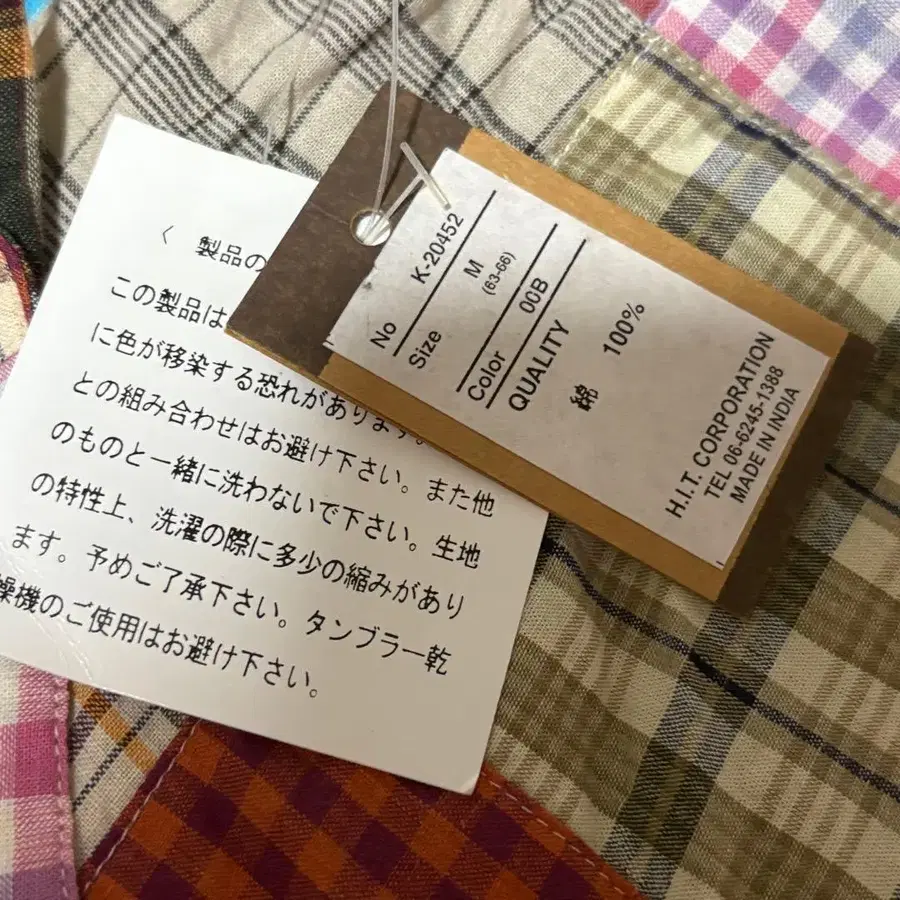 〈 製品の
この製品は
に色が移染する恐れがあります。
との組み合わせはお避け下さい。また他
のものと一緒に洗わないで下さい。生地
の特性上、洗濯の際に多少の縮みがあり
ます。予めご了承下さい。タンブラー乾
燥機のご使用はお避け下さい。
No K-20452
Size M
(63-66)
Color 00B
QUALITY
綿 100%
H.I.T. CORPORATION
TEL 06-6245-1388
MADE IN INDIA